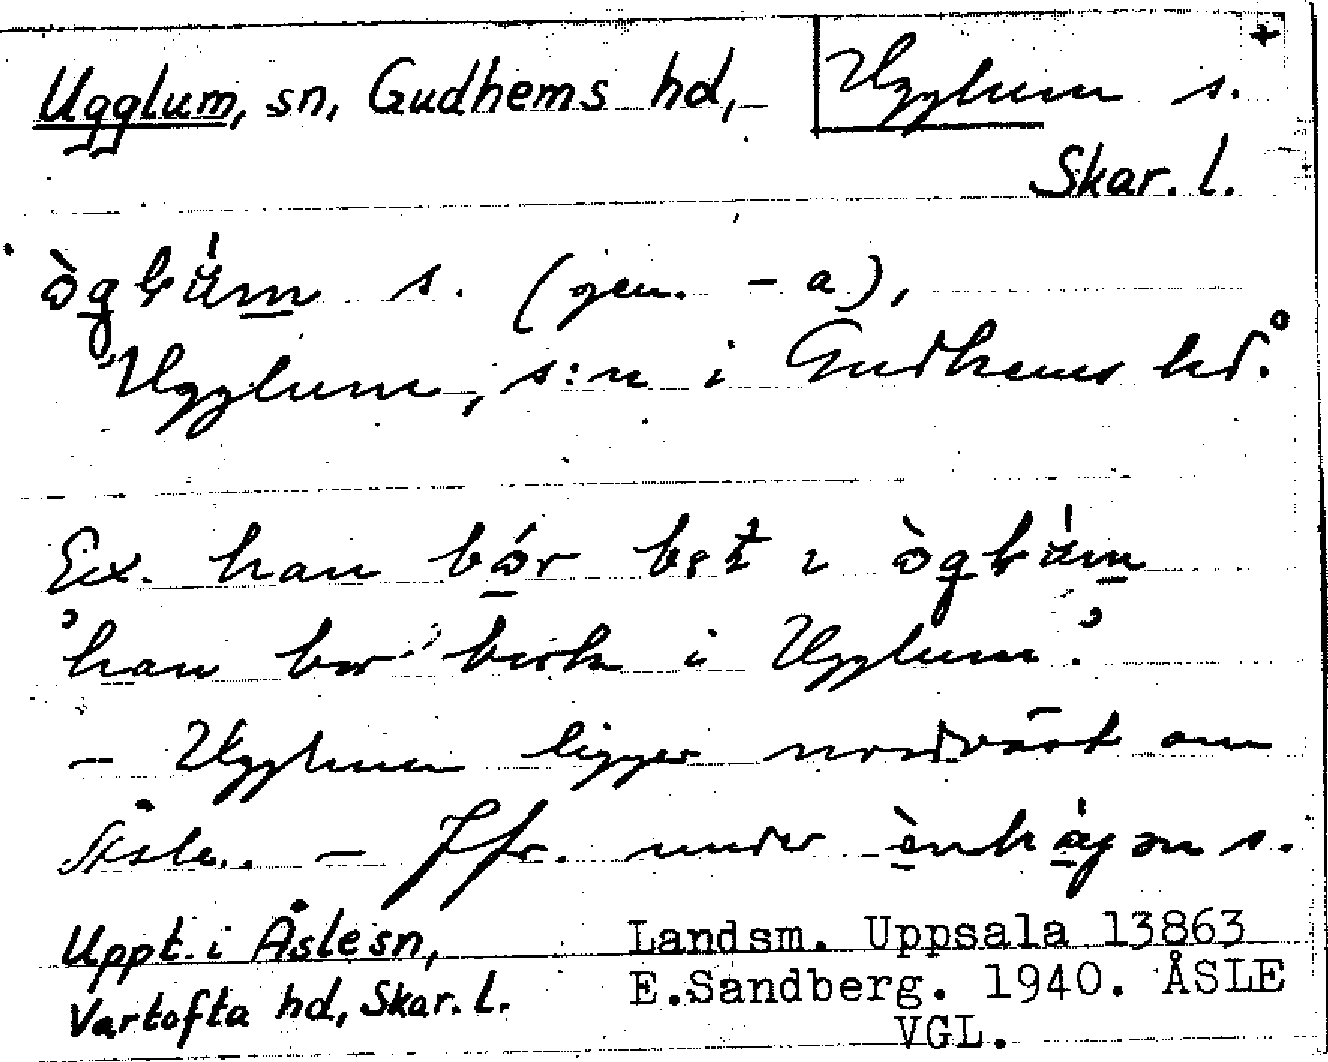 Ugglum, sn, Gudhems hd,
Ugglum s. +
Skar. l.
s. (gen. -a),
Ugglum, s:n i Gudhems hd.
Ex. han
'han bor bort i Ugglum.'
- Ugglum ligger nordväst om
Åsle. - Jfr. under s.
Uppt. i Åsle sn,
Vartofta hd, Skar. l.
Landsm. Uppsala 13863
E.Sandberg. 1940. ÅSLE
VGL.